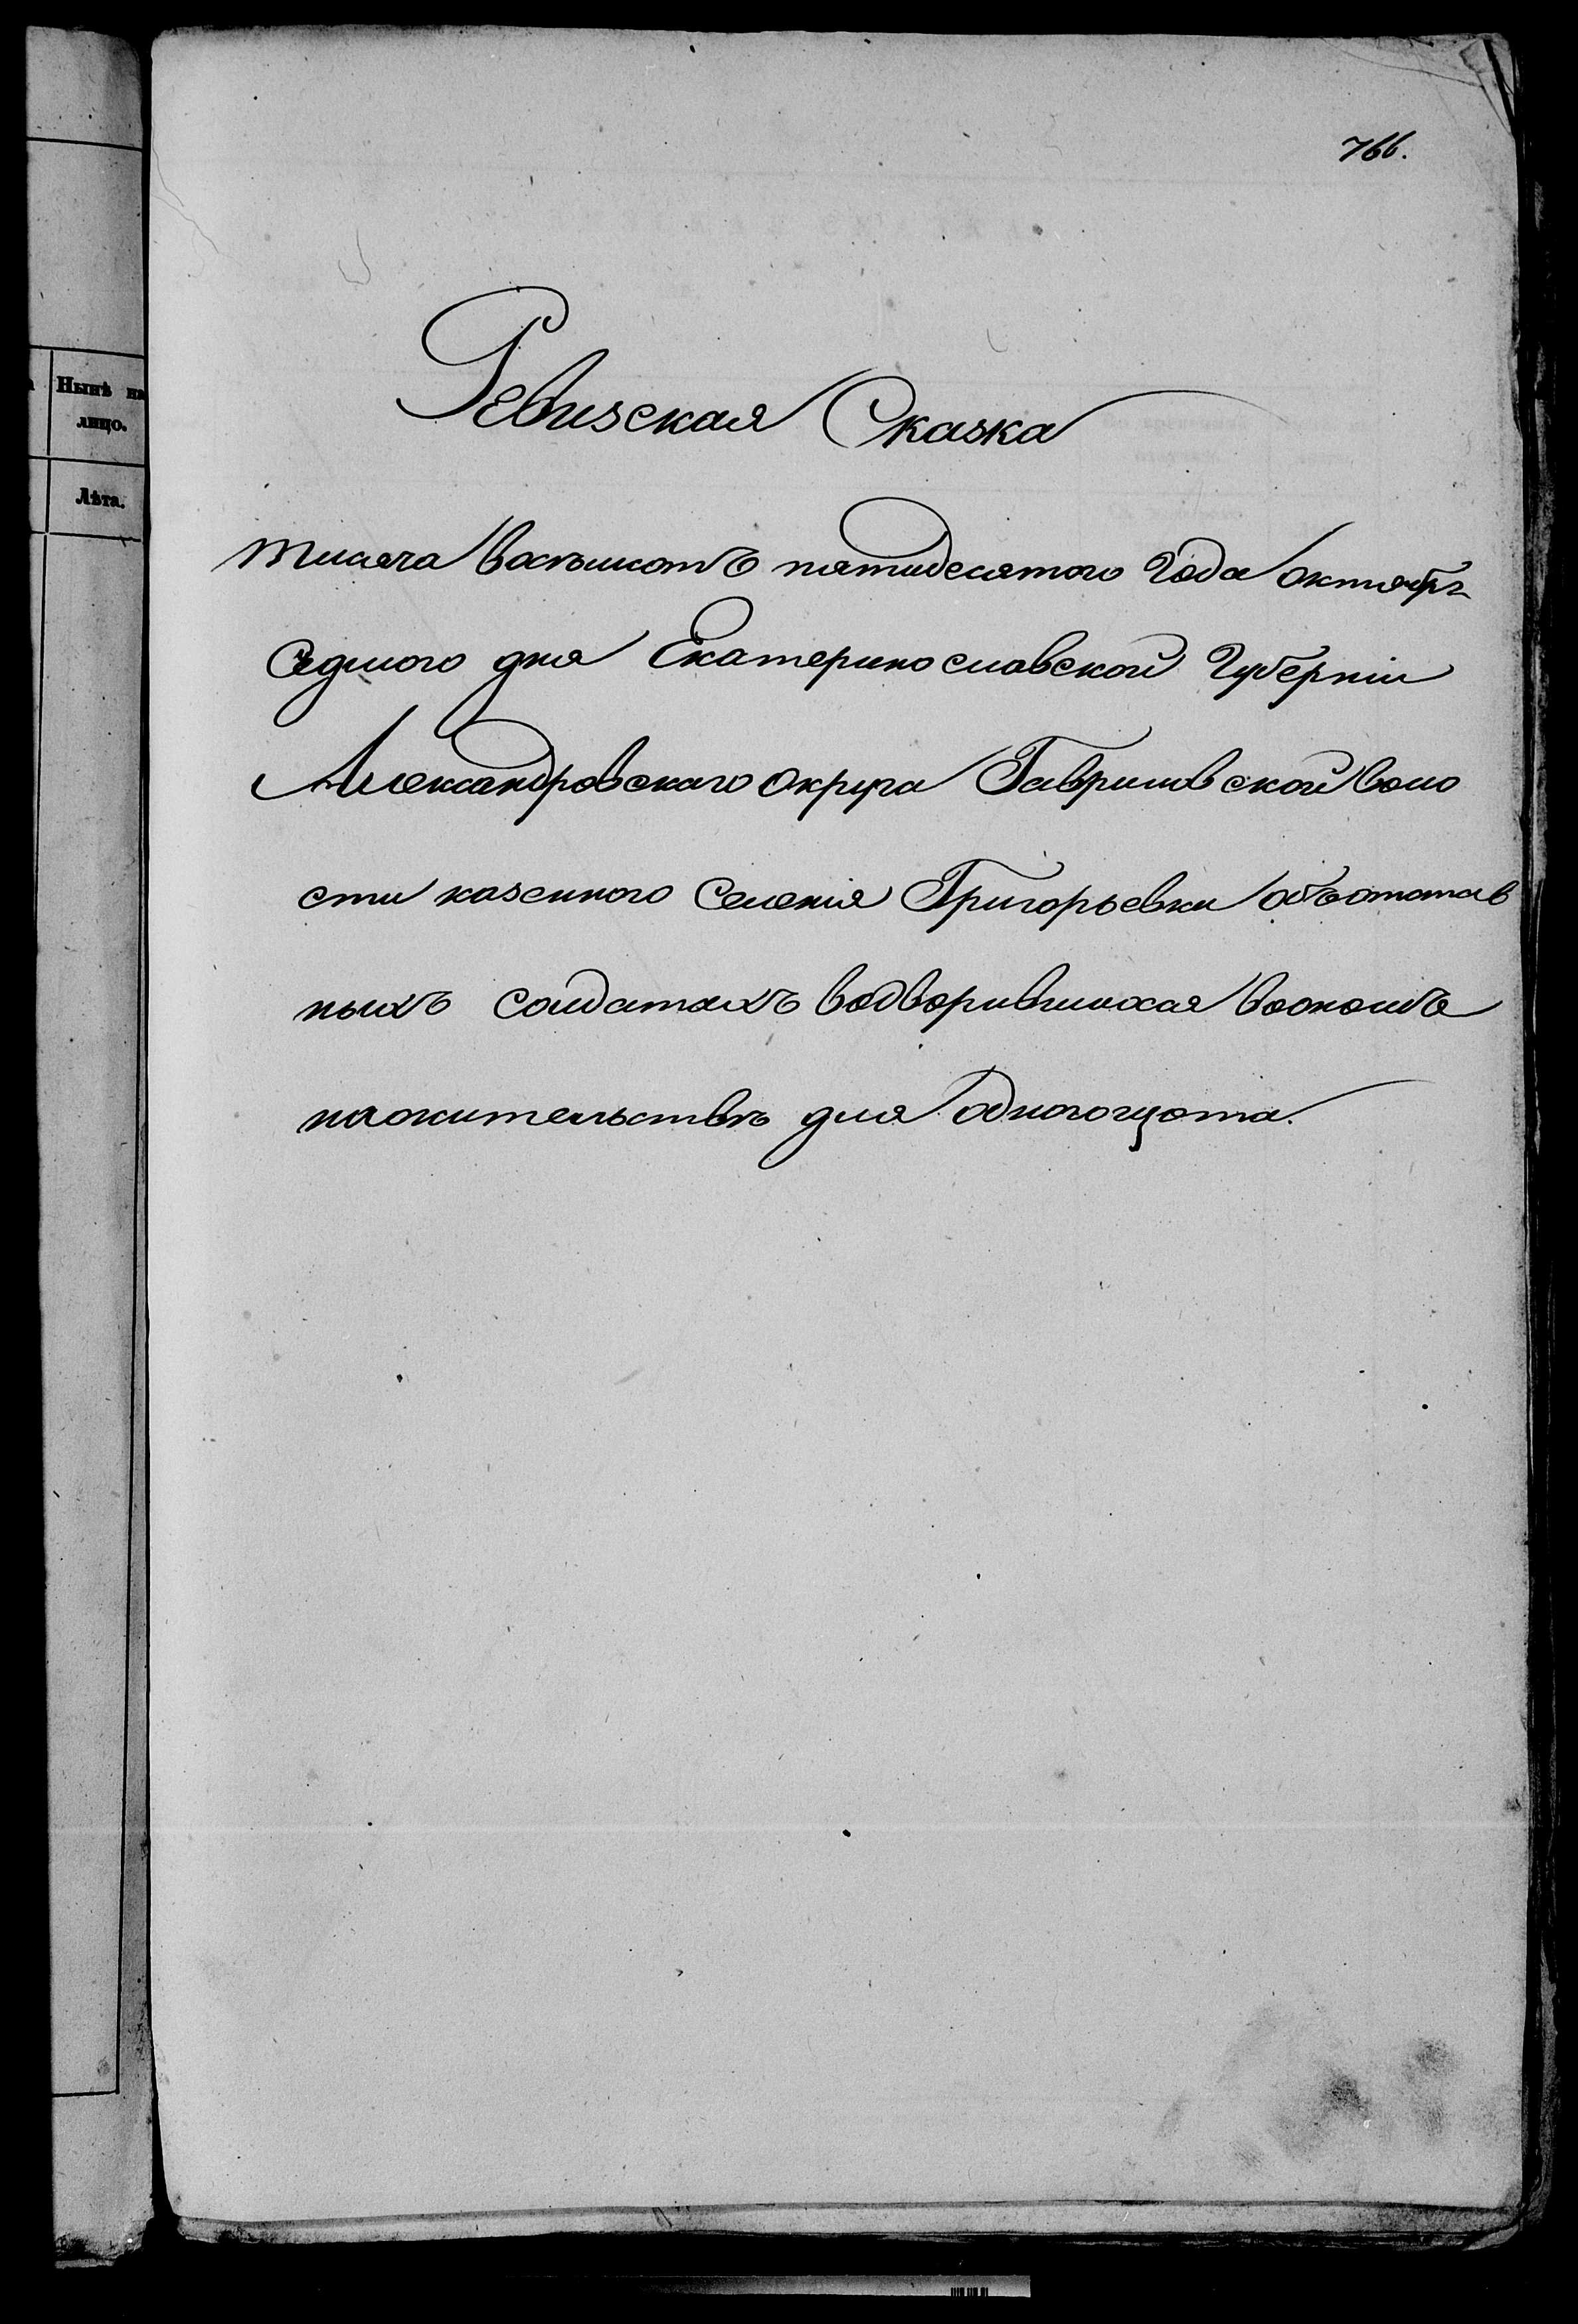 766.
Нынѣ на
лицо.
Лѣта.
Ревизская Сказка
тисяча восъмсотъ пятидесятого Года октября
Седмого дня Екатеринославской Губерніи
Александровскаго округа Гавриловской воло
сти казенного Селенія Григорьевки объ отстав
ныхъ солдатахъ водворившихся
жительствъ для одного щота.